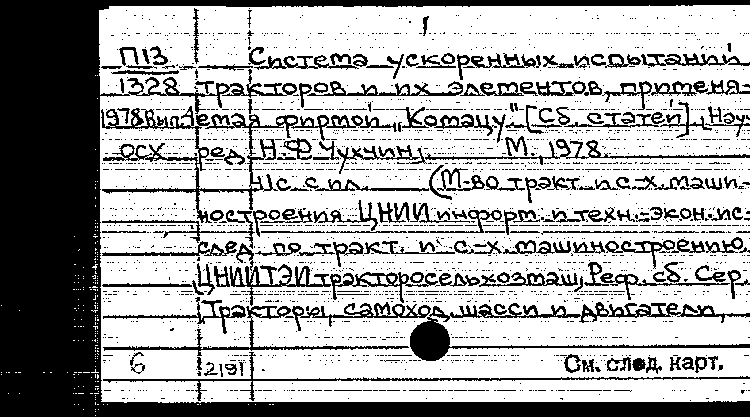 1
П13 Система ускоренных испытаний
1328 тракторов и их элементов, применя-
1978 Вып.1 емая фирмой „Комацу". [Сб. статей]. [Науч.
ОСХ ред. Н.Ф. Чухчин]. М., 1978.
41с. с ил. (М-во тракт. и с.-х. маши-
ностроения. ЦНИИ информ. и техн.-экон. ис-
след. по тракт. и с.-х. машиностроению.
ЦНИИТЭИтракторосельхозмаш, Реф. сб. Сер.
Тракторы, самоход. шасси и двигатели,
6 2191 См. след. карт.